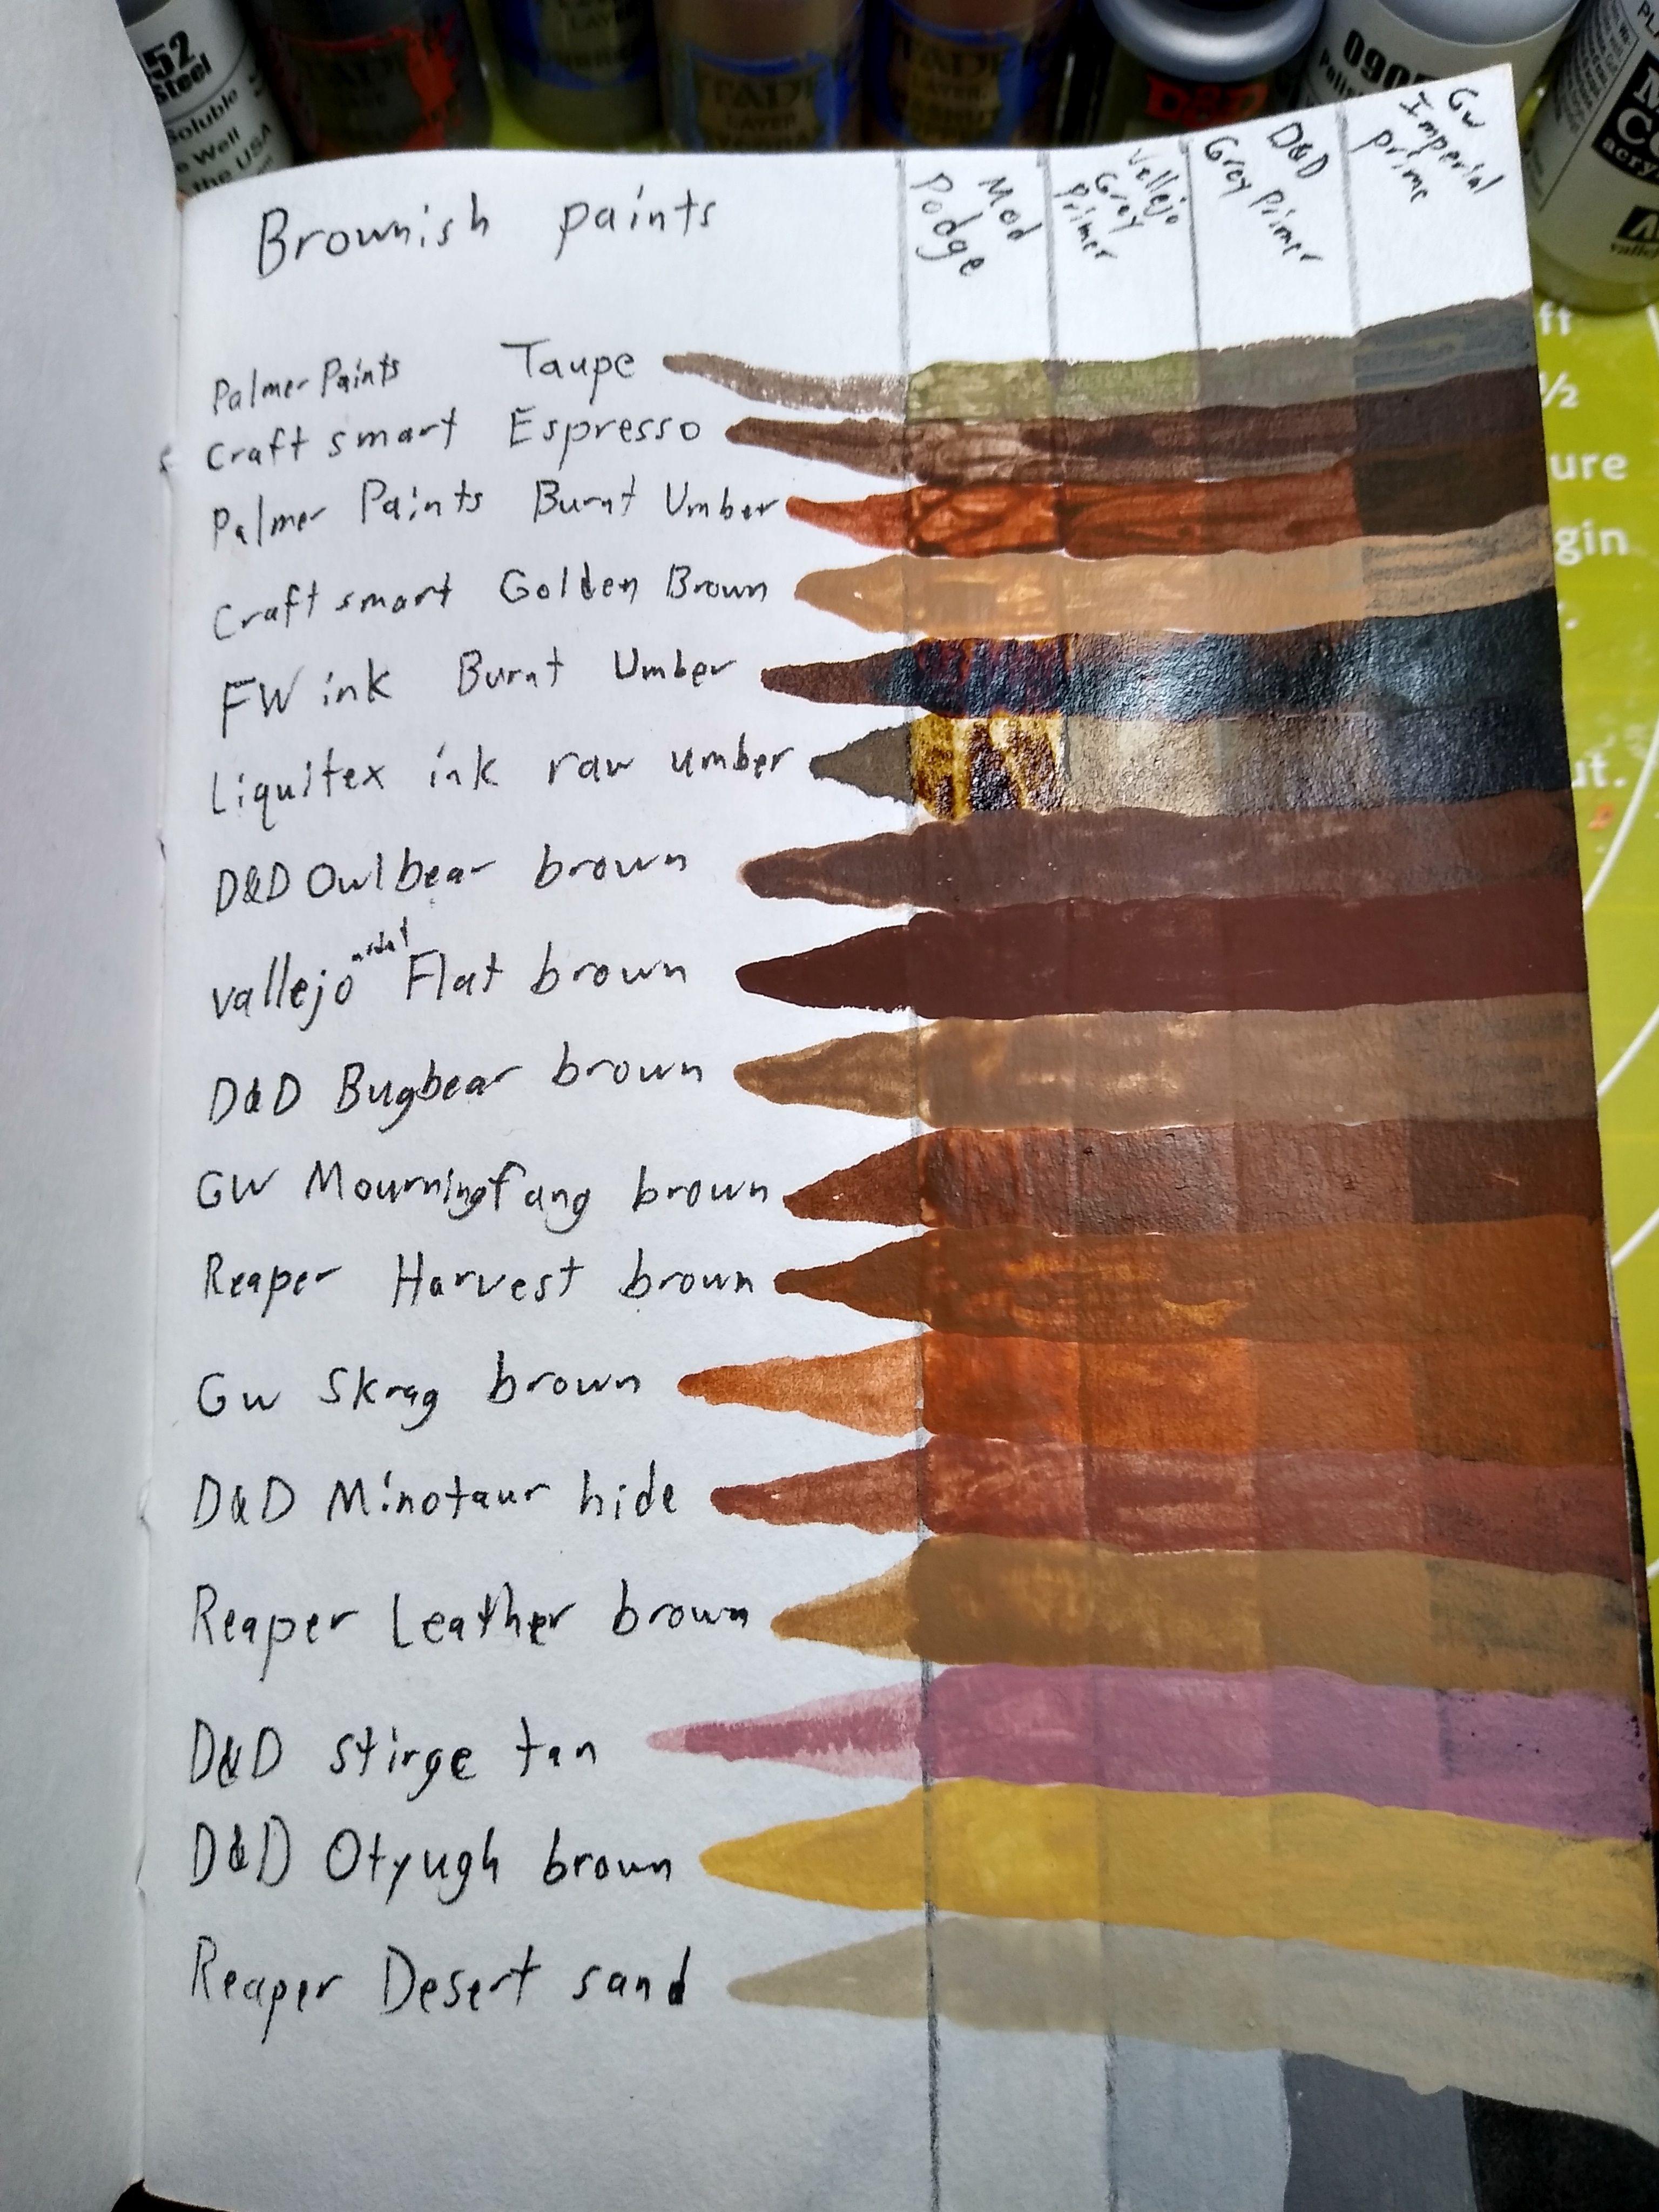 52
Steel
Soluble
Well
the USA
D&D
090
Brownish paints
Mod
Podge
Vallejo
Grey
Primer
D&D
Grey Primer
GW
Imperial
prime
Palmer Paints Taupe
Craft smart Espresso
Palmer Paints Burnt Umber
Craft smart Golden Brown
FW ink Burnt Umber
Liquitex ink raw umber
D&D Owlbear brown
vallejo Flat brown
D&D Bugbear brown
GW Mourningfang brown
Reaper Harvest brown
GW Skrag brown
D&D Minotaur hide
Reaper Leather brown
D&D stirge tan
D&D Otyugh brown
Reaper Desert sand
ft
½
ure
gin
ut.